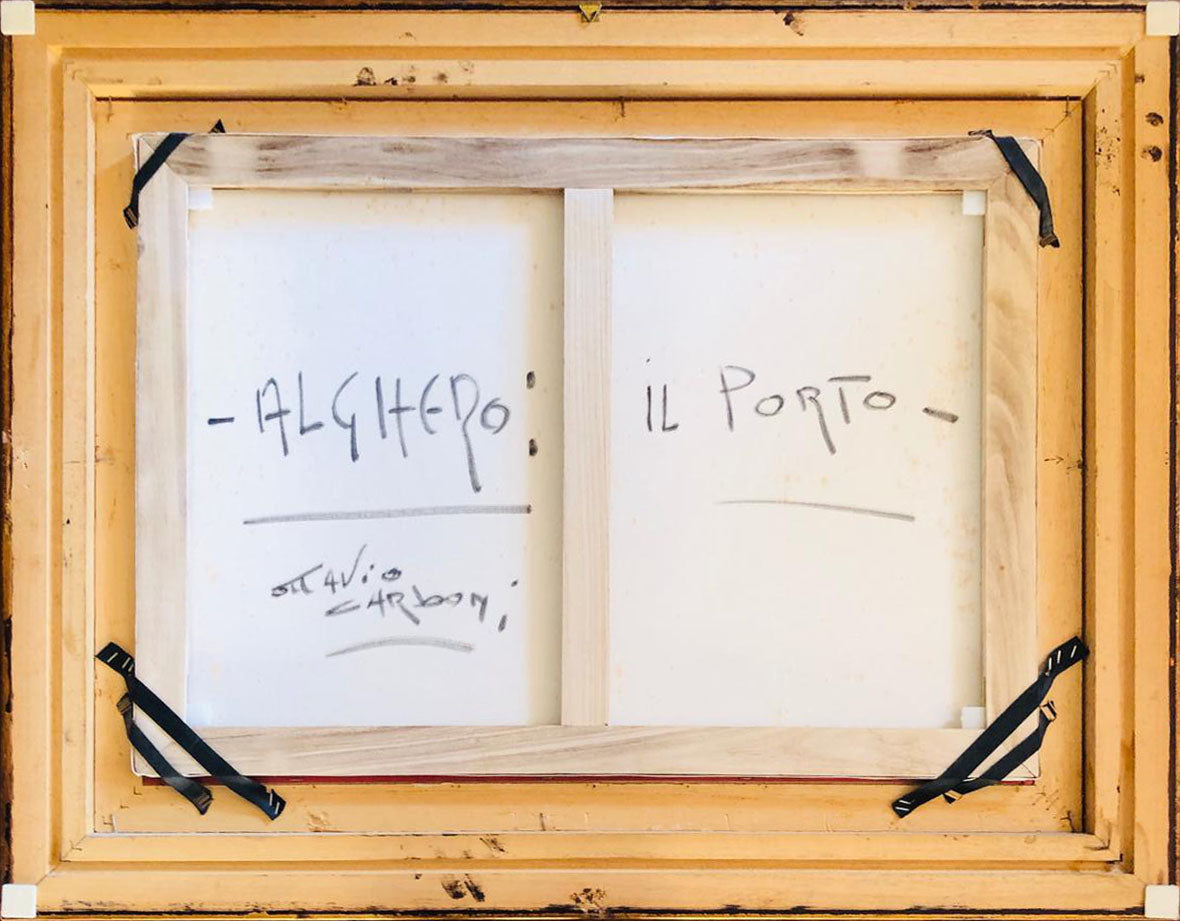 - ALGHERO: iL PORTO -
OTTAViO
CARboNi